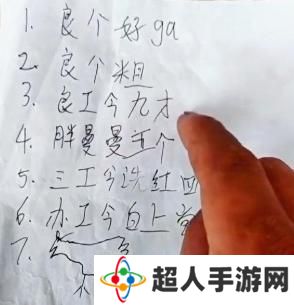 1. 良个好ga
2. 良个粗
3. 良工今九才
4. 胖曼曼王个
5. 三工今洗红四
6. 办工今白上
7.
超人手游网